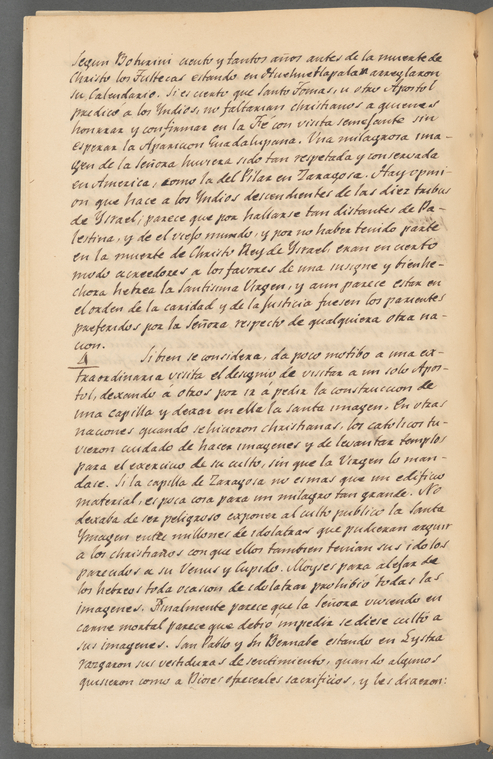 Segun Boturini ciento y tantos años antes de la muerte de
Christo los Tultecas estando en Huehuetlapalan arreglaron
su Calendario. Si es cierto que Santo Tomas, u otro Apostol
predicó a los Yndios, no faltarian christianos a quienes
honrrar y confirmar en la Fé con visita semejante sin
esperar la Aparicion Guadalupana. Una milagrosa ima-
gen de la Señora huviera sido tan respetada y conservada
en America, como la del Pilar en Zaragoza. Hay opini-
on que hace a los Yndios descendientes de las diez tribus
de Ysrael; parece que por hallarse tan distantes de Pa-
lestina, y de el viejo mundo, y por no haber tenido parte
en la muerte de Christo Rey de Ysrael, eran en cierto
modo acreedores a los favores de una insigne y bienhe-
chora hebrea la Santisima Virgen, y aun parece estar en
el orden de la caridad y de la justicia fuesen los parientes
preferidos por la Señora respecto de qualquiera otra na-
cion.
4 Si bien se considera, da poco motibo a una ex-
traordinaria visita el designio de visitar a un solo Apos-
tol, dexando á otros por ir á pedir la construccion de
una capilla y dexar en ella la santa imagen. En otras
naciones quando se hicieron christianas, los catolicos tu-
vieron cuidado de hacer imagenes y de levantar templos
para el exercicio de su culto, sin que la Virgen lo man-
dase. Si la capilla de Zaragoza no es mas que un edificio
material, es poca cosa para un milagro tan grande. No
dexaba de ser peligroso exponer al culto publico la Santa
Ymagen entre millones de idolatras que pudieran arguir
a los christianos con que ellos tambien tenian sus idolos
parecidos a su Venus y Cupido. Moyses para alejar de
los hebreos toda ocasion de idolatrar prohibio todas las
imagenes. Finalmente parece que la Señora viviendo en
carne mortal parece que debió impedir se diese culto a
sus imagenes. San Pablo y Sn Bernabe estando en Lystra
razgaron sus vestiduras de sentimiento, quando algunos
quisieron como a Dioses ofrecerles sacrificios, y les dixeron: